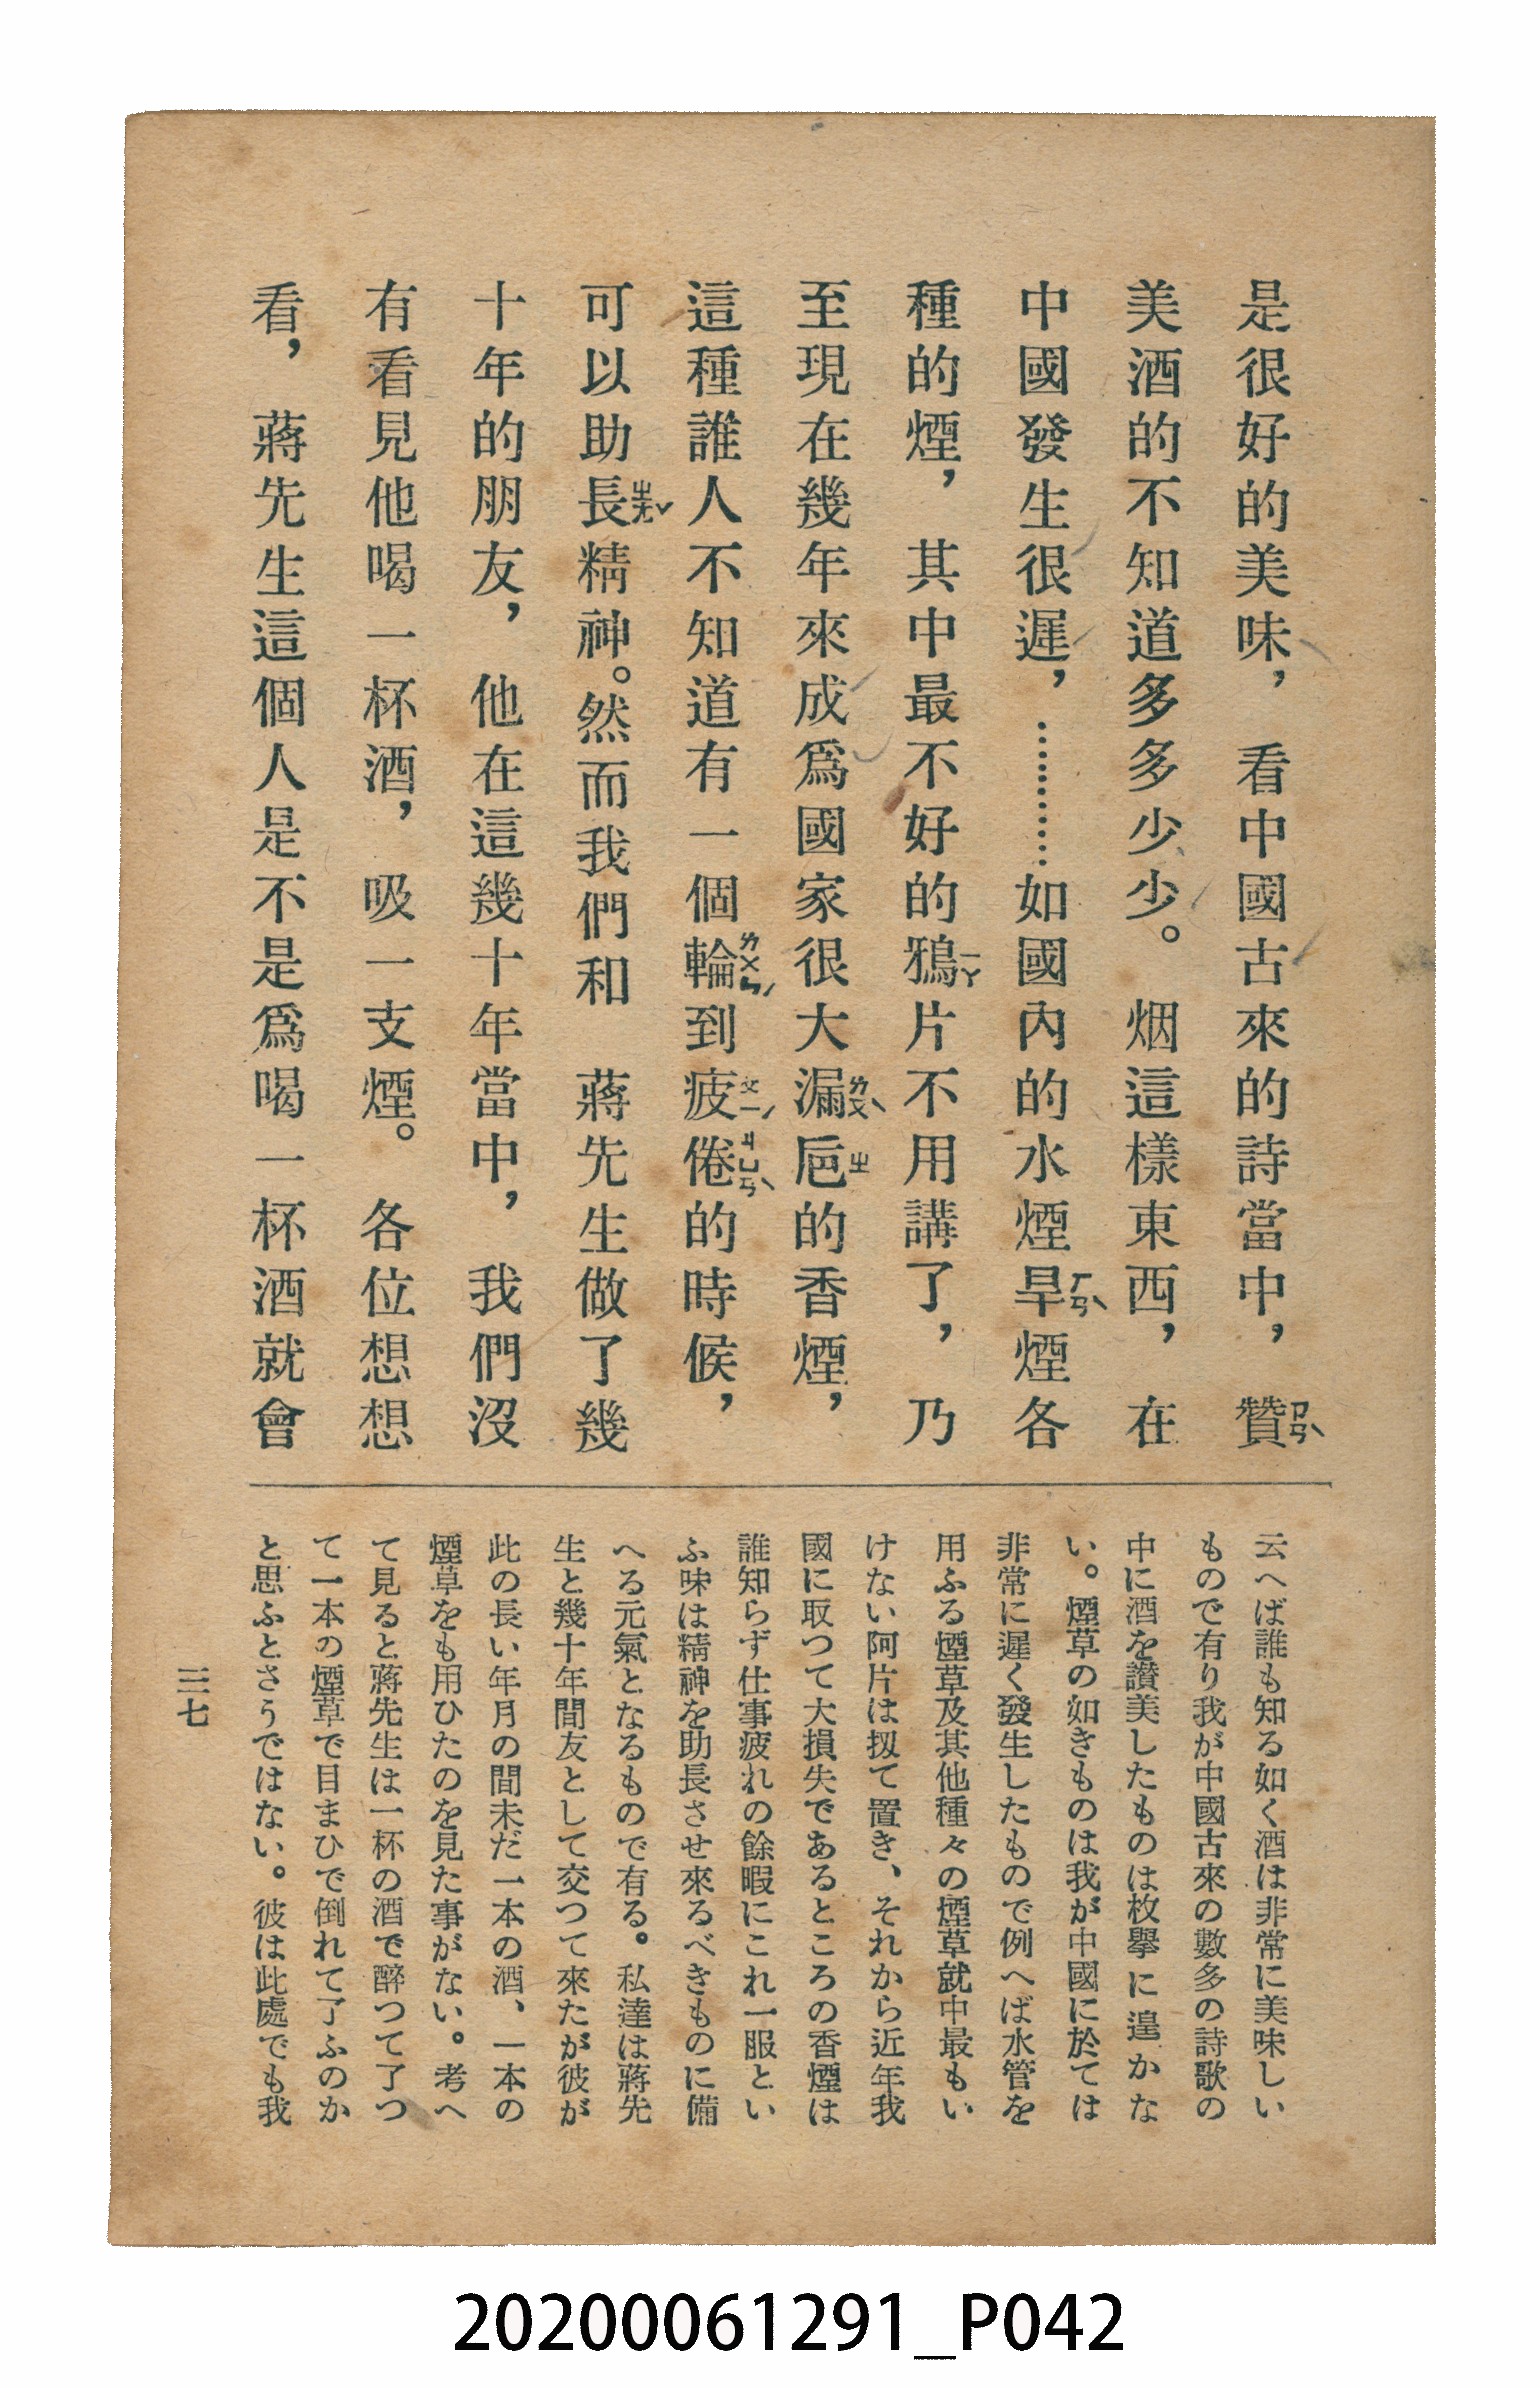 是很好的美味，看中國古來的詩當中，贊ㄗㄢˋ
美酒的不知道多多少少。烟這樣東西，在
中國發生很遲，…………如國內的水煙旱ㄏㄢˋ煙各
種的煙，其中最不好的鴉ㄧㄚ片不用講了，乃
至現在幾年來成爲國家很大漏ㄌㄡˋ巵ㄓ的香煙，
這種誰人不知道有一個輪ㄌㄨㄣˊ到疲ㄆㄧˊ倦ㄐㄩㄢˋ的時候，
可以助長ㄓㄤˇ精神。然而我們和　蔣先生做了幾
十年的朋友，他在這幾十年當中，我們沒
有看見他喝一杯酒，吸一支煙。各位想想
看，蔣先生這個人是不是爲喝一杯酒就會
云へば誰も知る如く酒は非常に美味しい
もので有り我が中國古來の數多の詩歌の
中に酒を讃美したものは枚擧に遑かな
い。煙草の如きものは我が中國に於ては
非常に遲く發生したもので例へば水管を
用ふる煙草及其他種々の煙草就中最もい
けない阿片は扨て置き、それから近年我
國に取つて大損失であるところの香煙は
誰知らず仕事疲れの餘暇にこれ一服とい
ふ味は精神を助長させ來るべきものに備
へる元氣となるもので有る。私達は蔣先
生と幾十年間友として交つて來たが彼が
此の長い年月の間未だ一本の酒、一本の
煙草をも用ひたのを見た事がない。考へ
て見ると蔣先生は一杯の酒で醉つて了つ
て一本の煙草で目まひで倒れて了ふのか
と思ふとさうではない。彼は此處でも我
三七
20200061291_P042